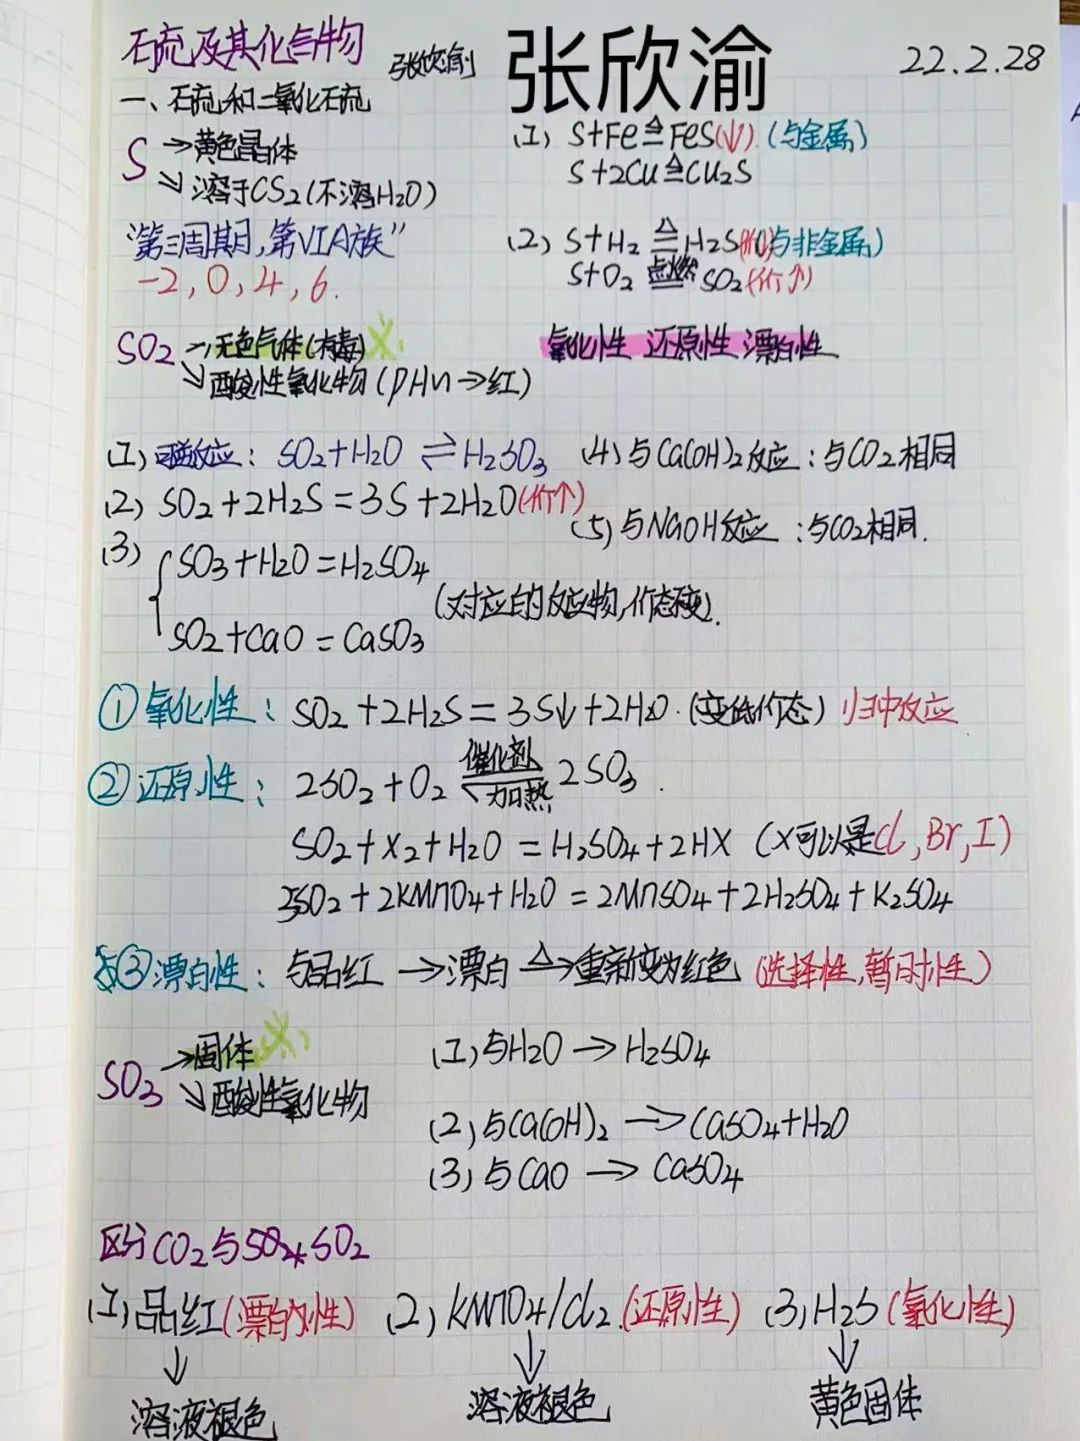 硫及其化合物 张欣渝 张欣渝 22.2.28
一、硫和二氧化硫
S →黄色晶体
↘溶于CS2(不溶H2O)
(1) S+Fe≜FeS(↓).(与金属)
S+2Cu≜Cu2S
"第三周期,第VIA族"
-2,0,4,6.
(2) S+H2 ≜ H2S 与非金属)
S+O2 点燃 SO2(价↑)
SO2 →无色气体(有毒)
↘酸性氧化物(pHn→红)
氧化性 还原性 漂白性
(1) 反应: SO2+H2O ⇌ H2SO3
(2) SO2+2H2S=3S+2H2O(价↑)
(3) { SO3+H2O=H2SO4
SO2+CaO=CaSO3
(对应的反应物,价态不变).
(4)与Ca(OH)2反应:与CO2相同
(5)与NaOH反应:与CO2相同.
①氧化性: SO2+2H2S=3S↓+2H2O.(变低价态) 归中反应
②还原性: 2SO2+O2 催化剂 加热 2SO3.
SO2+X2+H2O=H2SO4+2HX (X可以是Cl,Br,I)
SO2+2KMnO4+H2O=2MnSO4+2H2SO4+K2SO4
③漂白性: 与品红→漂白 △→重新变为红色 (选择性,暂时性)
SO3 →固体
↘酸性氧化物
(1)与H2O→H2SO4
(2)与Ca(OH)2→CaSO4+H2O
(3)与CaO→CaSO4
区分CO2与SO2
(1)品红(漂白性) (2)KMnO4/Cl2.(还原性) (3)H2S(氧化性)
↓ ↓ ↓
溶液褪色 溶液褪色 黄色固体